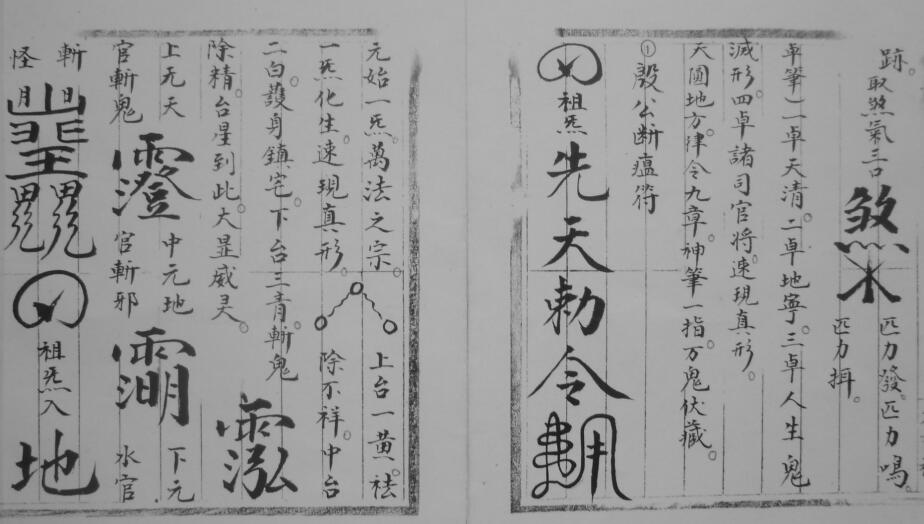 跡。取煞氣三口 煞 匹力發。匹力鳴。
匹力揖。
卓筆一卓天清。二卓地寧。三卓人生鬼
滅形四卓諸司官将。速現真形。
天圓地方。律令九章。神筆一指。万鬼伏藏。
①殷公断瘟符
祖炁 先天勅令
元始一炁。萬法之宗。上台一黄。祛
一炁化生。速現真形。除不祥。中台
二白。護身鎮宅。下台三青。斬鬼
除精。台星到此。大显威灵。
上元天 中元地 下元
官斬鬼 官斬邪 水官
斬
怪 日月
祖炁入
地